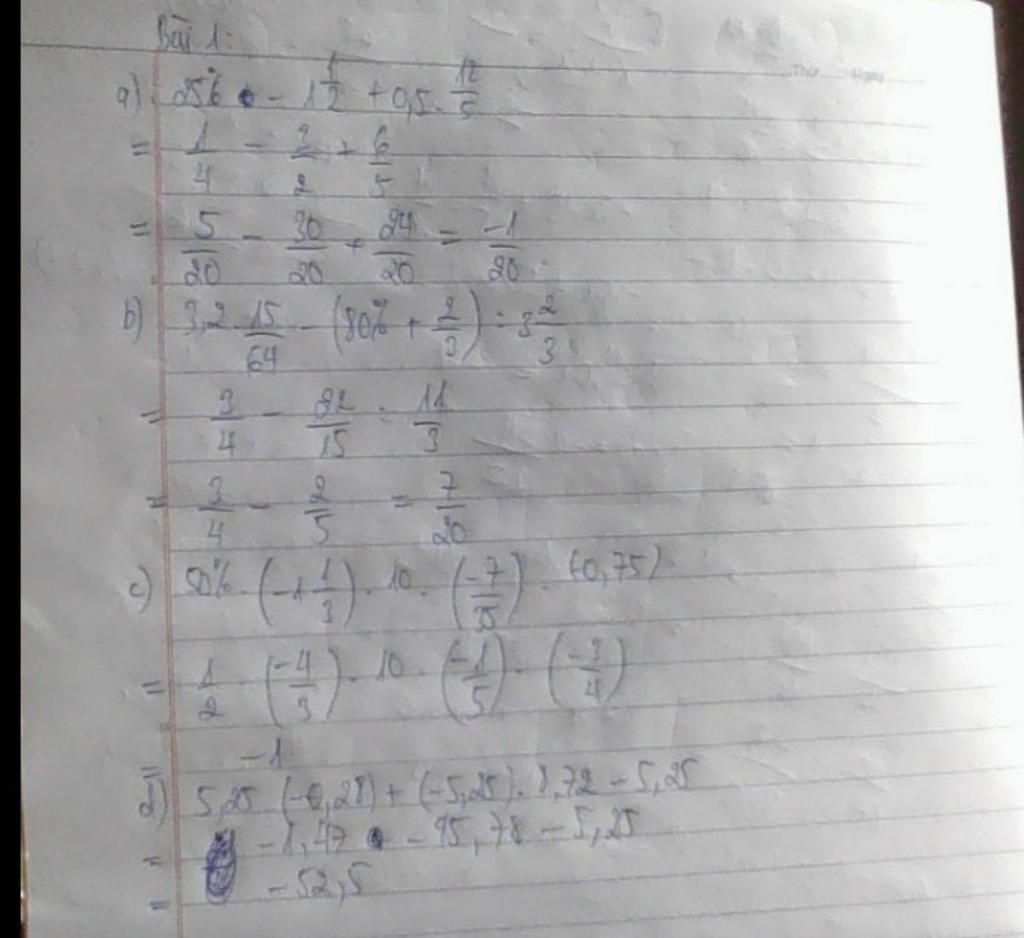 Bài 1:
Thứ Ngày
a) 25% - 1 1/2 + 0,5 . 12/5
= 1/4 - 3/2 + 6/5
= 5/20 - 30/20 + 24/20 = -1/20
b) 3,2 . 15/64 - (80% + 2/3) : 3 2/3
= 3/4 - 22/15 . 11/3
= 3/4 - 2/5 = 7/20
c) 50% . (-1 1/3) . 10 . (-7/35) . (-0,75)
= 1/2 . (-4/3) . 10 . (-1/5) . (-3/4)
= -1
d) 5,25 (-0,28) + (-5,25) . 8,72 - 5,25
= -1,47 - 45,78 - 5,25
= -52,5